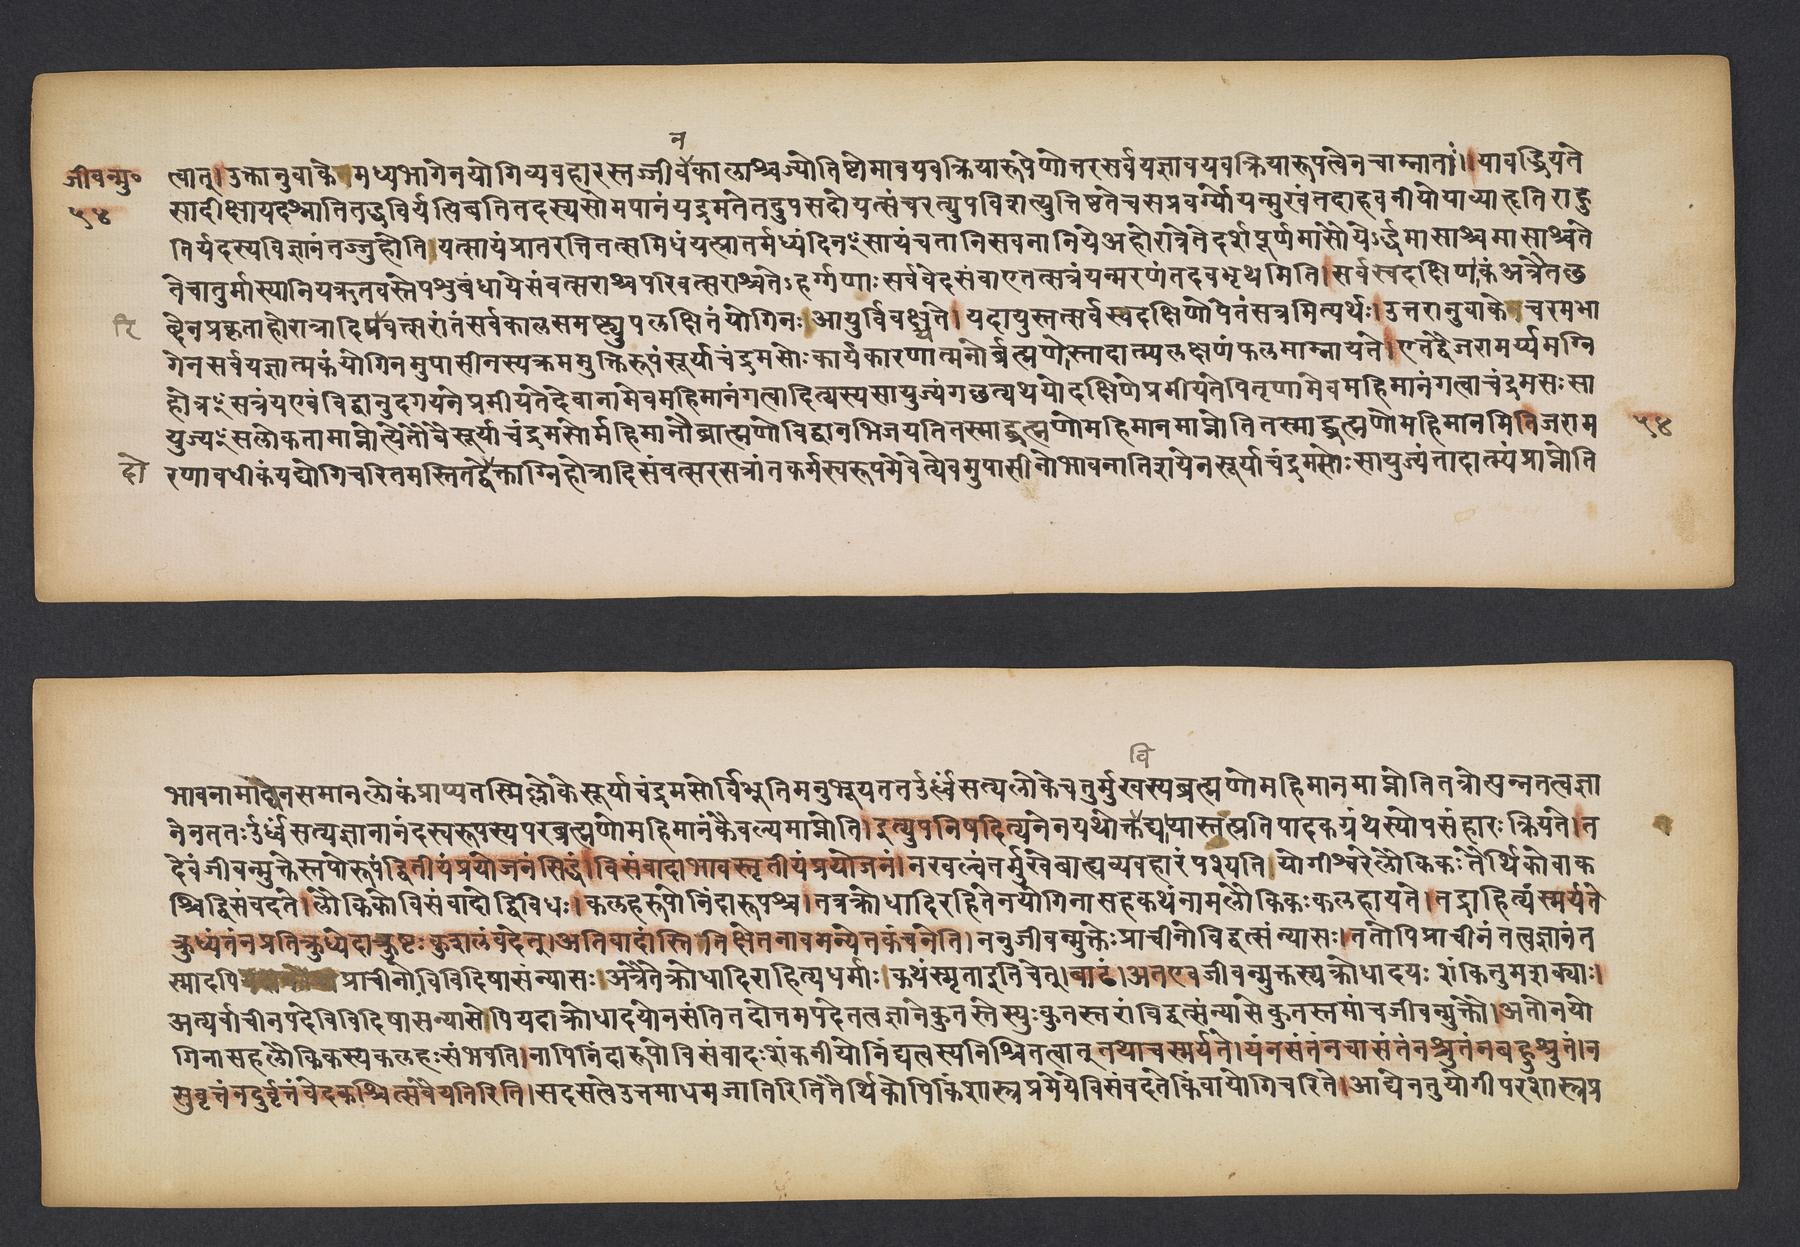 न
जीवन्मु०
५४
त्वात्।उक्तानुवाकेमध्यभागेनयोगिव्यवहारस्तज्जीवेकालाश्चज्योतिष्टोमावयवक्रियारूपेणोत्तरसर्वयज्ञावयवक्रियारूपत्वेनचाम्नाताः।यावद्ध्रियते
सादीक्षायदश्नातितद्धविर्यत्पिबतितदस्यसोमपानंयद्रमतेतदुपसदोयत्संचरत्युपविशत्युत्तिष्ठतेचसप्रवर्ग्योयन्मुखंतदाहवनीयोयाव्याहृतिराहु
तिर्यदस्यविज्ञानंतज्जुहोति।यत्सायंप्रातरत्तितत्समिधंयत्प्रातर्मध्यंदिनꣳसायंचतानिसवनानियेअहोरात्रेतेदर्शपूर्णमासौयेऽर्द्धमासाश्चमासाश्चते
तेचातुर्मास्यानियऋतवस्तेपशुबंधायेसंवत्सराश्चपरिवत्सराश्चतेऽहर्गणाःसर्ववेदसंवाएतत्सत्रंयन्मरणंतदवभृथमिति।सर्वस्वदक्षिणाकंअत्रैतछ
रि
ब्देनप्रकृताहोरात्रादिपवत्सरांतंसर्वकालसमष्ट्युपलक्षितंयोगिनःआयुर्विवक्ष्यते।यदायुस्तत्सर्वस्वदक्षिणोपेतंसत्रमित्यर्थः।उत्तरानुवाकेचरमभा
गेनसर्वयज्ञात्मकंयोगिनमुपासीनस्यक्रममुक्तिरूपंसूर्याचंद्रमसोःकार्यकारणात्मनोर्ब्रह्मणोस्तादात्म्यलक्षणंफलमाम्नायते।एतद्वैजरामर्य्यमग्नि
होत्रꣳसत्रंयएवंविद्वानुदगयनेप्रमीयतेदेवानामेवमहिमानंगत्वादित्यस्यसायुज्यंगछत्यथयोदक्षिणेप्रमीयतेपितृणामेवमहिमानंगत्वाचंद्रमसःसा
युज्यꣳसलोकतामाप्नोत्येतौवैसूर्याचंद्रमसोर्महिमानौब्राह्मणोविद्वानभिजयतितस्माद्ब्रह्मणोमहिमानमाप्नोतितस्माद्ब्रह्मणोमहिमानमितिजराम
५४
दो
रणावधीकंयद्योगिचरितमस्तितद्वेक्ताग्निहोत्रादिसंवत्सरसत्रांतकर्मस्वरूपमेवेत्येवमुपासीनोभावनातिशयेनसूर्याचंद्रमसोःसायुज्यंतादात्म्यंप्राप्नोति
वि
भावनामांद्येनसमानलोकंप्राप्यतस्मिल्लोकेसूर्याचंद्रमसोर्विभुतिमनुभूयततऊर्ध्वंसत्यलोकेचतुर्मुखस्यब्रह्मणोमहिमानमाप्नोतितत्रोत्पन्नतत्वज्ञा
नेनततःऊर्ध्वंसत्यज्ञानानंदस्वरूपस्यपरब्रह्मणोमहिमानंकैवल्यमाप्नोति।इत्युपनिषदित्यनेनयथोक्तद्यायास्तत्प्रतिपादकग्रंथस्योपसंहारःक्रियते।त
देवंजीवन्मुक्तेस्तपोरूपंद्वितीयंप्रयोजनंसिद्धं।विसंवादाभावस्तृतीयंप्रयोजनं।नखल्वंतर्मुखेबाह्यव्यवहारंपश्यति।योगीश्वरेलौकिकःतैर्थिकोवाक
श्चिद्विसंवदते।लौकिकोविसंवादोद्विविधः।कलहरूपोनिंदारूपश्च।तत्रक्रोधादिरहितेनयोगिनासहकथंनामलौकिकःकलहायते।तद्राहित्यंस्मर्यते
क्रुध्यंतंनप्रतिक्रुध्येदाक्रुष्टःकुशलंवदेत्।अतिवादांस्तितिक्षेतनावमन्येतकंचनेति।ननुजीवन्मुक्तेःप्राचीनोविद्वत्संन्यासः।ततोपिप्राचीनंतत्वज्ञानंत
स्मादपिप्राचीनोविविदिषासंन्यासः।अत्रैतेक्रोधादिराहित्यधर्माः।कथंस्मृताइतिचेत्।बाढं।अतएवजीवन्मुक्तस्यक्रोधादयःशंकितुमशक्याः।
अत्यर्वाचीनपदेविविदिषासन्यासेपियदाक्रोधादयोनसंतितदोत्तमपदेतत्वज्ञानेकुतस्तेस्युःकुतस्तरांविद्वत्संन्यासेकुतस्तमांचजीवन्मुक्तौ।अतोनयो
गिनासहलौकिकस्यकलहःसंभवति।नापिनिंदारूपोविसंवादःशंकनीयोनिंद्यत्वस्यनिश्चितत्वात्तथाचस्मर्यते।यंनसंतंनचासंतंनश्रुतंनबहुश्रुतं।न
सुवृत्तंनदुर्वृत्तंवेदकश्चित्संवैयतिरिति।सदसत्वेउत्तमाधमजातिरितितैर्थिकोपिकिंशास्त्रप्रमेयेविसंवदतेकिंवायोगिचरिते।आद्येनतुयोगीपरशास्त्रप्र